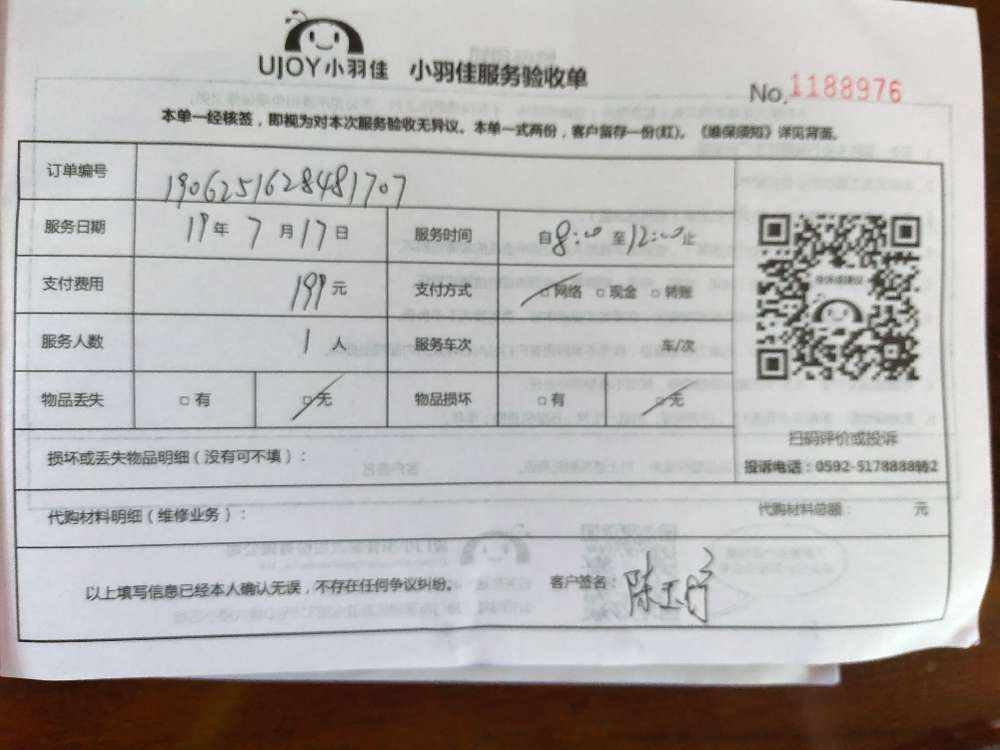 UJOY小羽佳 小羽佳服务验收单
No. 1188976
本单一经核签，即视为对本次服务验收无异议。本单一式两份，客户留存一份(红)。《维保须知》详见背面。
订单编号 1906251628481707
服务日期 19年 7 月 17 日 服务时间 自 8:00 至 12:00 止
支付费用 199 元 支付方式 □ 网络 □ 现金 □ 转账
服务人数 1 人 服务车次 车/次
物品丢失 □ 有 □ 无 物品损坏 □ 有 □ 无
投诉或建议
扫码评价或投诉
损坏或丢失物品明细（没有可不填）：
投诉电话：0592-5178888转2
代购材料明细（维修业务）： 代购材料总额： 元
以上填写信息已经本人确认无误，不存在任何争议纠纷。 客户签名： 陈